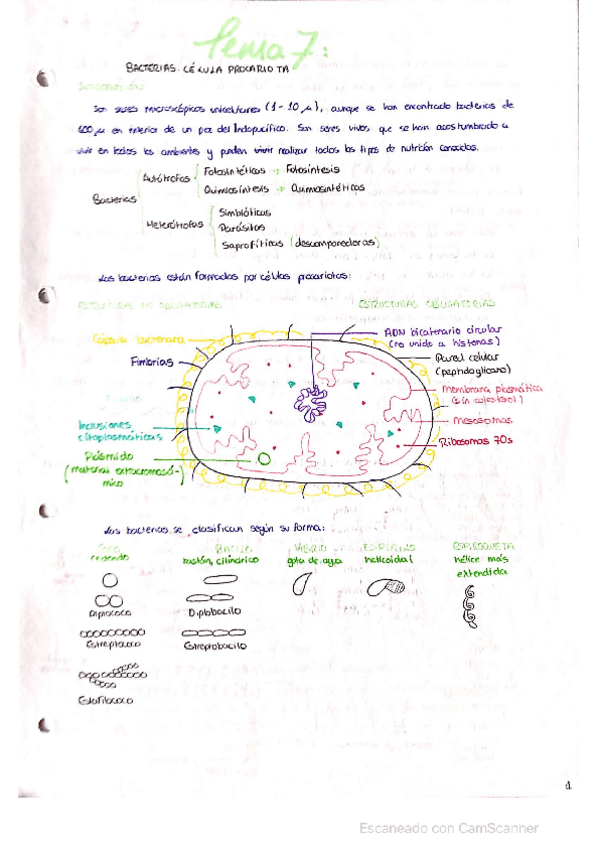 Tema 7:
BACTERIAS. CÉLULA PROCARIOTA
INTRODUCCIÓN
Son seres microscópicos unicelulares (1-10 µ), aunque se han encontrado bacterias de
600 µ en interior de un pez del Indopacífico. Son seres vivos que se han acostumbrado a
vivir en todos los ambientes y pueden vivir realizar todos los tipos de nutrición conocidos.
Bacterias
Autótrofas
Fotosintéticas → Fotosíntesis
Quimiosíntesis → Quimiosintéticas
Heterótrofas
Simbióticas
Parásitas
Saprofíticas (descomponedoras)
Las bacterias están formadas por células procariotas:
ESTRUCTURAS NO OBLIGATORIAS
ESTRUCTURAS OBLIGATORIAS
Cápsula bacteriana
Fimbrias
Inclusiones
citoplasmáticas
Plásmido
(material extracromosó-
mico)
ADN bicatenario circular
(no unido a histonas)
Pared celular
(peptidoglicano)
Membrana plasmática
(sin colesterol)
Mesosomas
Ribosomas 70s
Las bacterias se clasifican según su forma:
COCO
redondo
Diplococo
Estreptococo
Estafilococo
BACILO
bastón, cilíndrico
Diplobacilo
Estreptobacilo
VIBRIO
gota de agua
ESPIRILO
helicoidal
ESPIROQUETA
hélice más
extendida
1
Escaneado con CamScanner